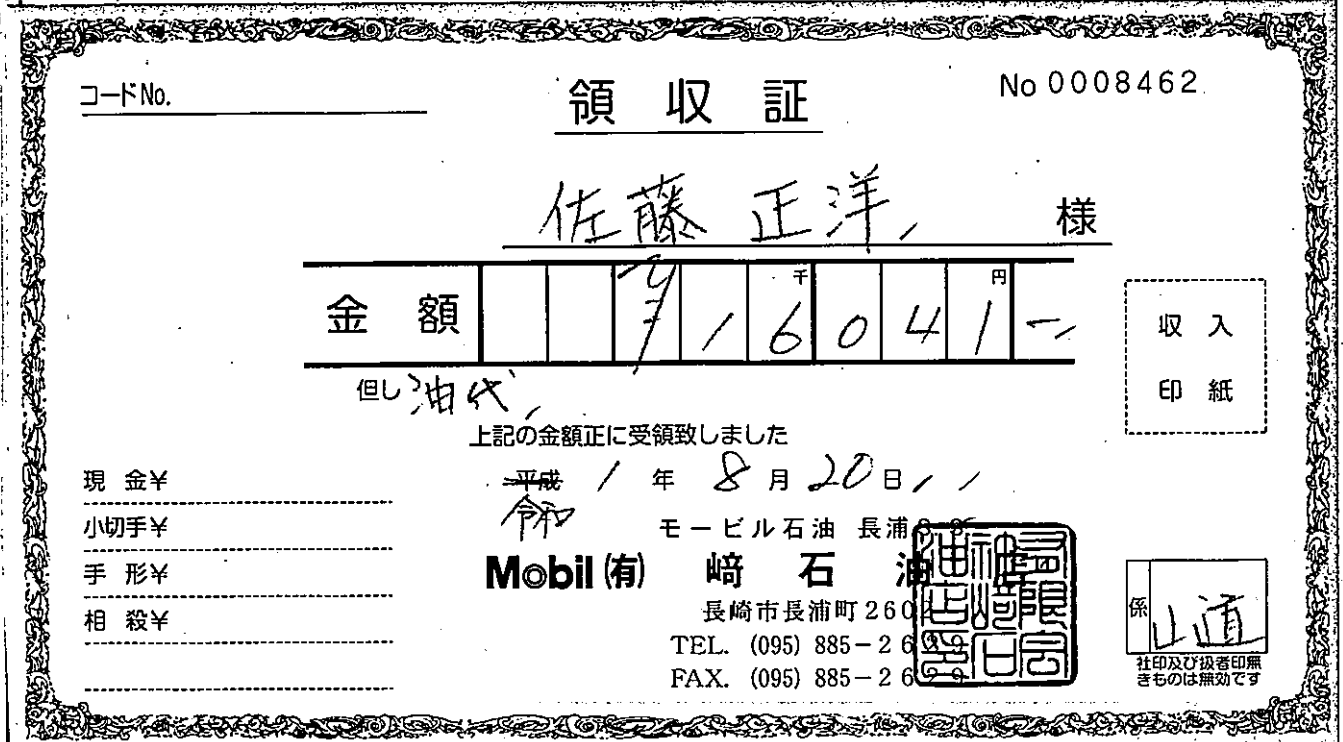 コードNo.
領収証
No 0008462
佐藤 正洋 様
金額 ¥16041-
千 円
但し 油代
収入
印紙
上記の金額正に受領致しました
平成 令和 1年8月20日
現金¥
小切手¥
手形¥
相殺¥
モービル石油 長浦SS
Mobil (有) 﨑石油
長崎市長浦町260
TEL. (095) 885-26
FAX. (095) 885-26
係 山道
社印及び扱者印無
きものは無効です